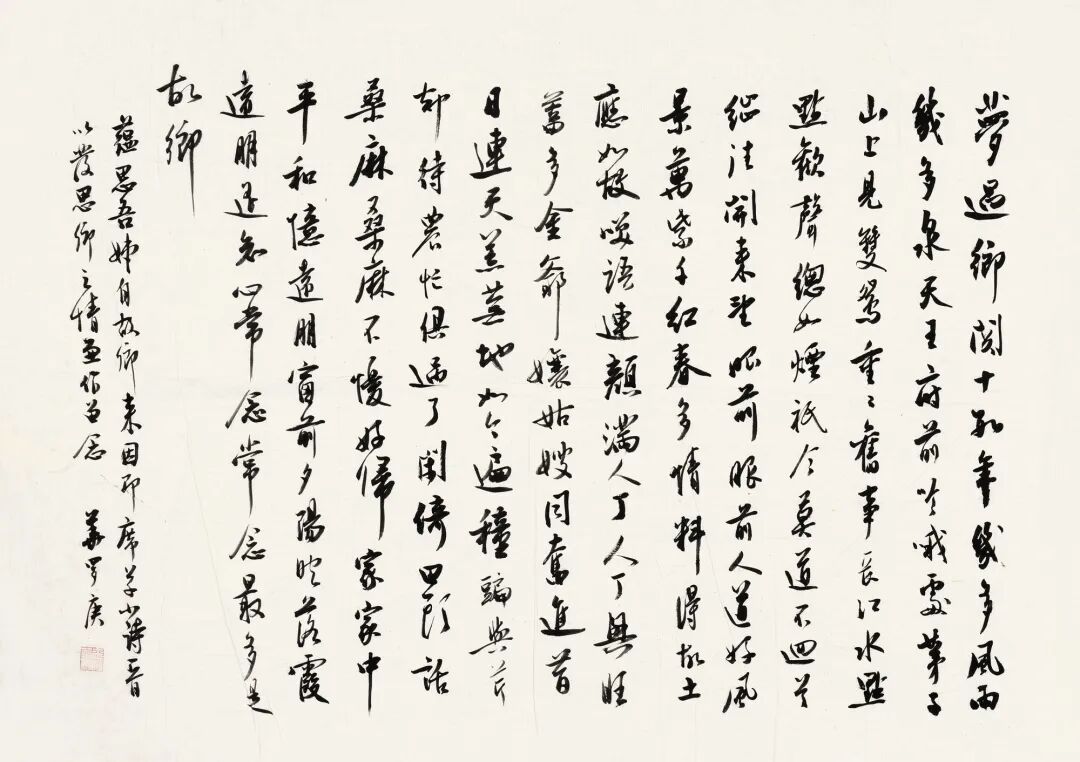 夢過鄉關十年幾多風雨
幾多泉天王府前吟哦處茅子
山上見雙鴛重重舊事長江水點
點歡聲總如煙祇今莫道不回首
繼往開來望眼前眼前人道好風
景萬紫千紅春多情料得故土
應如故笑語連滿人丁人丁興旺
蓄多金爺孃姑嫂同奮進昔
日連天荒蕪地如今遍種與芹
却待農忙俱過了閑倚田頭話
桑麻桑麻不慢好歸家家中
平和憶遠朋窗前夕陽映落霞
遠朋遥知心常念常念最多是
故鄉
蘊思吾姊自故鄉來因即席草小詩一首
以發思鄉之情並作留念 華羅庚